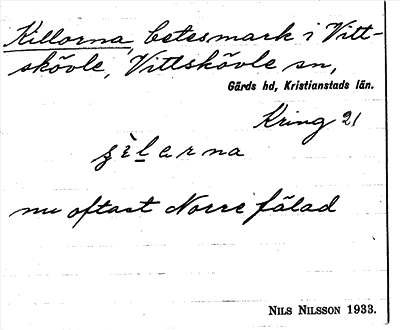 Killorna, betesmark i Vitt-
skövle, Vittskövle sn,
Gärds hd, Kristianstads län.
Kring 21
nu oftast Norre fälad
NILS NILSSON 1933.